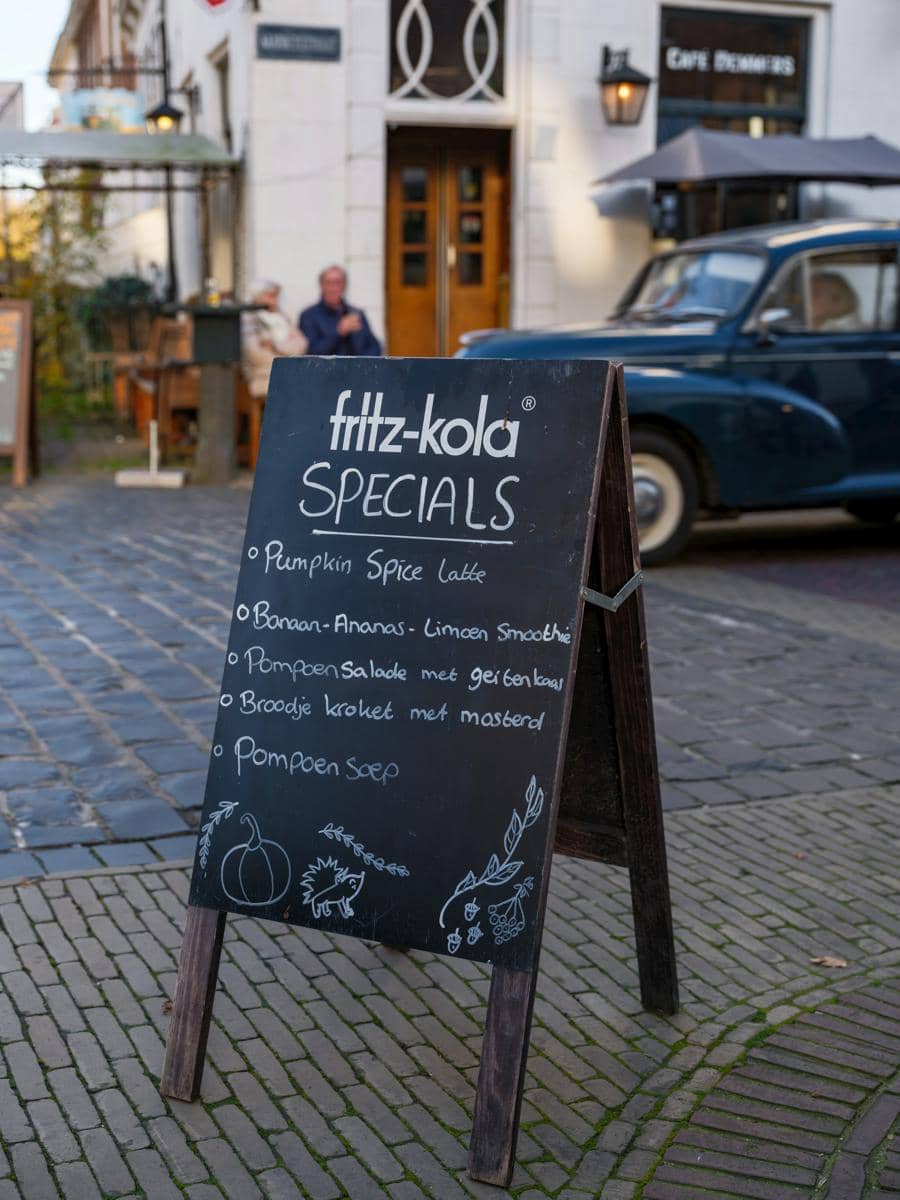 CAFÉ DEMMERS
fritz-kola®
SPECIALS
Pumpkin Spice Latte
Banaan-Ananas-Limoen Smoothie
Pompoensalade met geitenkaas
Broodje kroket met mosterd
Pompoen soep